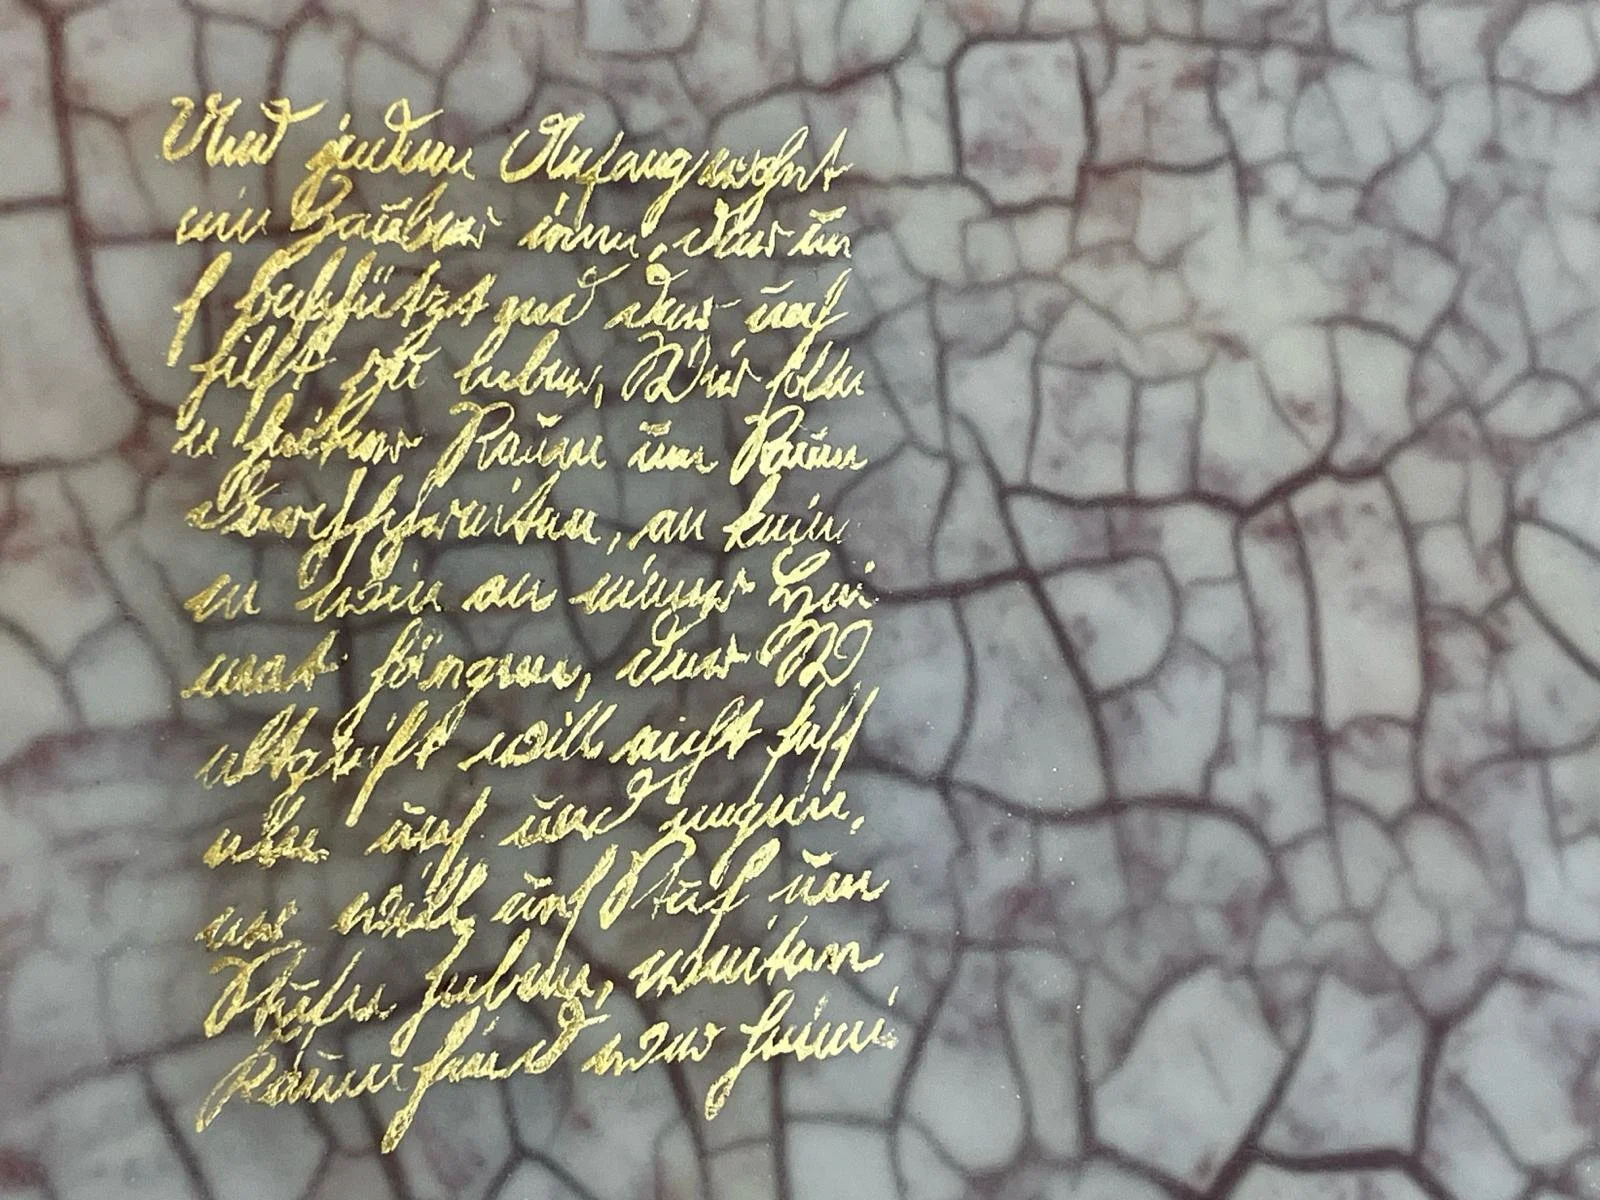 Und jedem Anfang wohnt
ein Zauber inne, der un
s beschützt und der uns
hilft zu leben, Wir solle
n heiter Raum um Raum
durchschreiten, an kein
er wie an einer Hei
mat hängen, der W
eltgeist will nicht fess
eln uns und engen,
er will uns Stuf um
Stufe heben, weiten
Kaum sind wir heimi